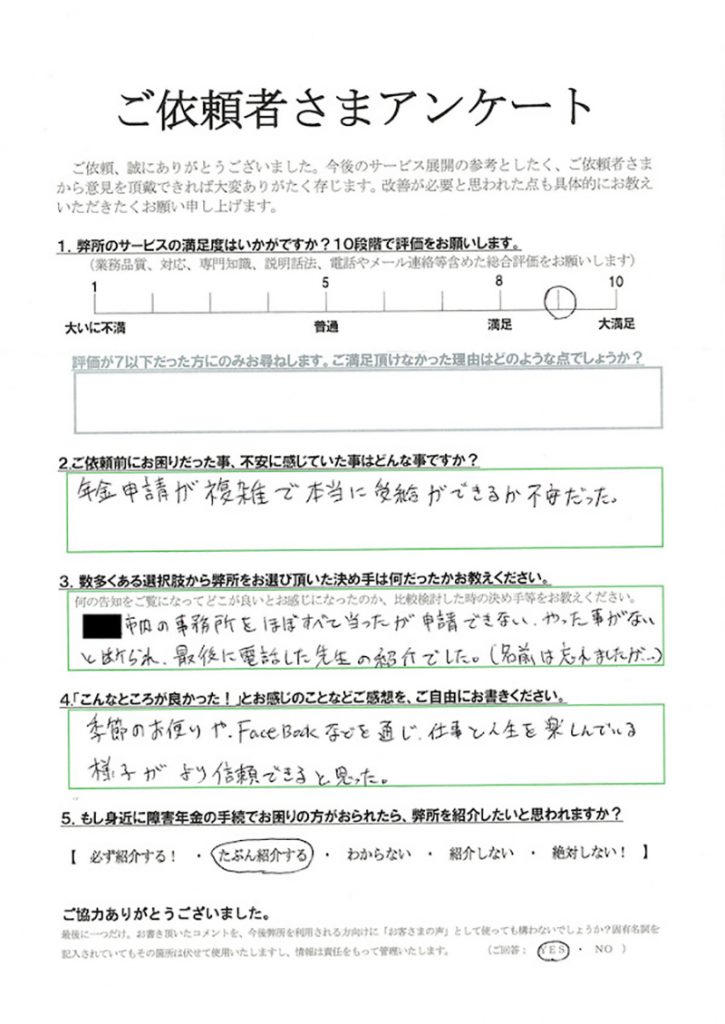 ご依頼者さまアンケート
ご依頼、誠にありがとうございました。今後のサービス展開の参考としたく、ご依頼者さま
から意見を頂戴できれば大変ありがたく存じます。改善が必要と思われた点も具体的にお教え
いただきたくお願い申し上げます。
1. 弊所のサービスの満足度はいかがですか？10段階で評価をお願いします。
（業務品質、対応、専門知識、説明話法、電話やメール連絡等含めた総合評価をお願いします）
1 5 8 10
大いに不満 普通 満足 大満足
評価が7以下だった方にのみお尋ねします。ご満足頂けなかった理由はどのような点でしょうか？
2.ご依頼前にお困りだった事、不安に感じていた事はどんな事ですか？
年金申請が複雑で本当に受給ができるか不安だった。
3. 数多くある選択肢から弊所をお選び頂いた決め手は何だったかお教えください。
何の告知をご覧になってどこが良いとお感じになったのか、比較検討した時の決め手等をお教えください。
市内の事務所をほぼすべて当ったが申請できない、やった事がない
と断られ、最後に電話した先生の紹介でした。（名前は忘れましたが…）
4.「こんなところが良かった！」とお感じのことなどご感想を、ご自由にお書きください。
季節のお便りや、FaceBookなどを通じ、仕事と人生を楽しんでいる
様子がより信頼できると思った。
5. もし身近に障害年金の手続でお困りの方がおられたら、弊所を紹介したいと思われますか？
【 必ず紹介する！ ・ たぶん紹介する ・ わからない ・ 紹介しない ・ 絶対しない！ 】
ご協力ありがとうございました。
最後に一つだけ。お書き頂いたコメントを、今後弊所を利用される方向けに「お客さまの声」として使っても構わないでしょうか？固有名詞を
記入されていてもその箇所は伏せて使用いたしますし、情報は責任をもって管理いたします。 （ご回答： YES ・ NO ）